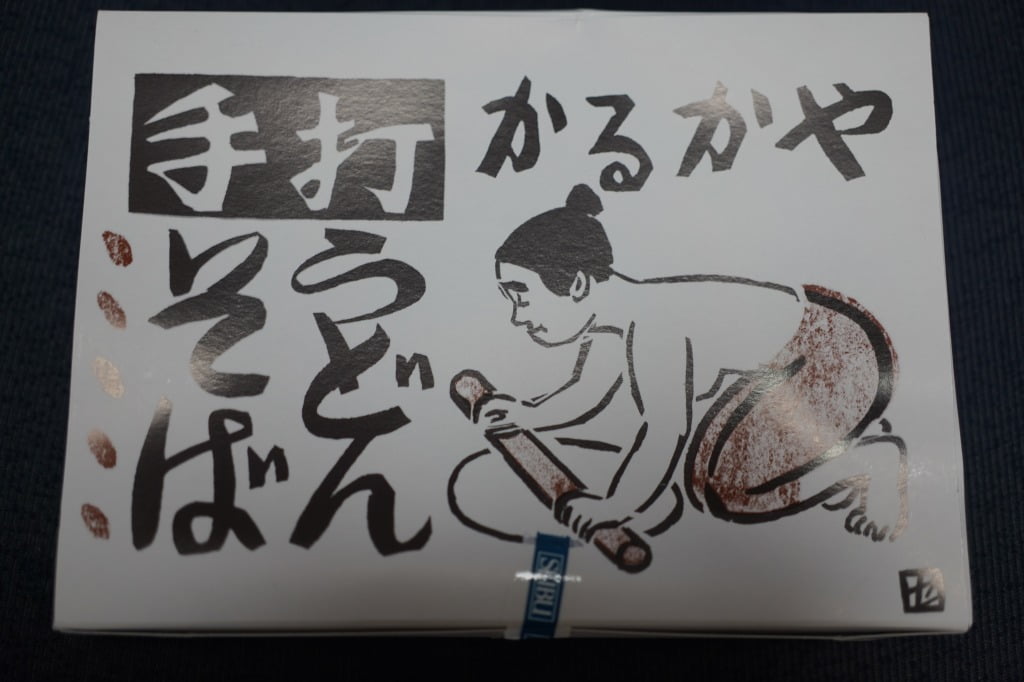 かるかや
手打
うどん
そば
SEIBU